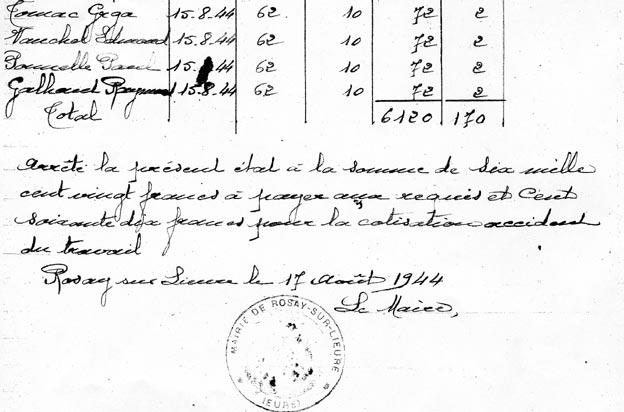 15.8.44 62 10 72 2
Edmond 15.8.44 62 10 72 2
15. 44 62 10 72 2
Galhaud Raymond 15.8.44 62 10 72 2
Total 6120 170
Arrêté la présent état à la somme de six mille
cent vingt francs à payer aux requis et Cent
soixante dix francs pour la cotisation accident
du travail
Rosay sur Lieure le 17 Août 1944
Le Maire,
MAIRIE DE ROSAY-SUR-LIEURE
(EURE)